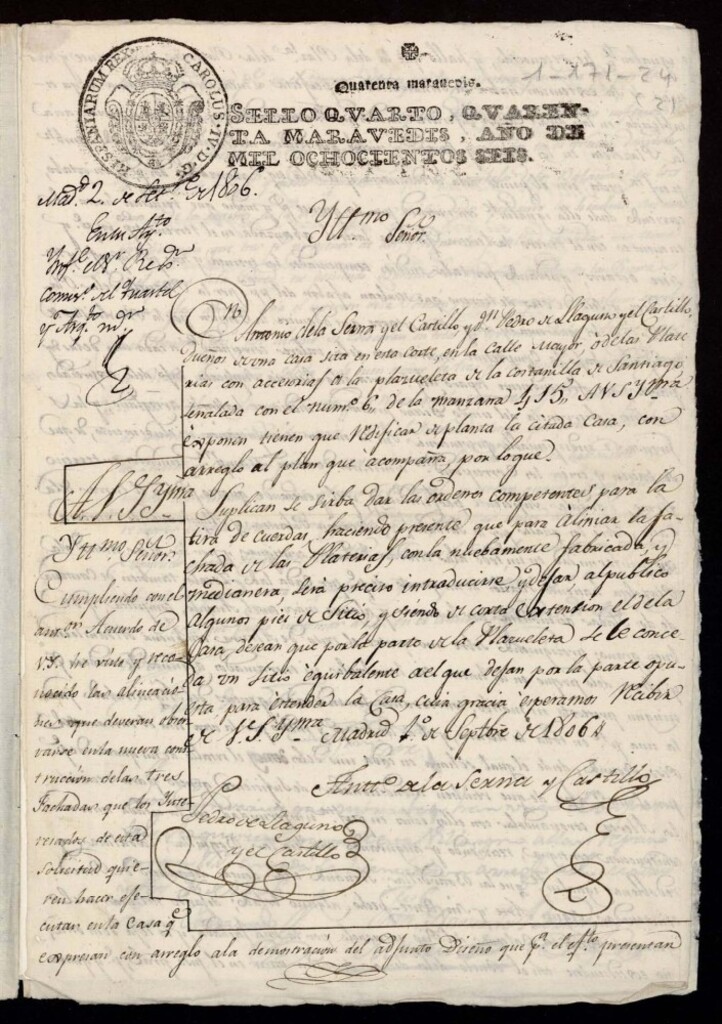 HISPANIARUM REX CAROLUS·IV·D·G·
Quarenta maravedis.
1-171-24
(2)
SELLO QVARTO, QVAREN-
TA MARAVEDIS, AÑO DE
MIL OCHOCIENTOS SEIS.
Mad.d 2. de Set.e de 1806.
En su Ay.to
Ynf.e el Sr. Red.r
Comis.o del Quartel
y Arq.to m.or
Ytt.mo Señor.
Dn. Antonio de la Serna y el Castillo, y d.n Pedro de Llaguno y el Castillo,
dueños de una casa sita en esta corte, en la Calle Mayor, ò de las Plate
rias con accesorias à la plazuela de la costanilla de Santiago,
señalada con el num.o 6,, de la manzana 415,, A V S Yma
exponen tienen que redificar de planta la citada Casa, con
arreglo al plan que acompaña, por loque.
A V.S. Yma Suplican se sirba dar las ordenes competentes para la
tira de cuerdas, haciendo presente que para Alinear la fa-
chada de las Platerias, con la nuebamente fabricada, y
medianera, será preciso introducirse y dejar, al publico
algunos pies de Sitio, y siendo de corta extension el de la
Casa, desean que por la parte de la Plazuela se le conce-
da un sitio equibalente al que dejan por la parte opu-
esta para extender la Casa, cuia gracia esperamos recibir
de V.S. Yma Madrid 1.o de Septbre de 1806.
Antt.o de la Serna y Castillo
Pedro de Llaguno
y el Castillo
Ytt.mo Señor.
Cumpliendo con el
ant.or Acuerdo de
V.S. he visto y reco
nocido las alineacio
nes que deveran obser
varse en la nueva cons
truccion de las tres
Fachadas que los Ynte
resados de esta
solicitud quie-
ren hacer eje-
cutar en la Casa q.e
expresan con arreglo a la demostracion del adjunto Diseño que p.a el ef.to presentan